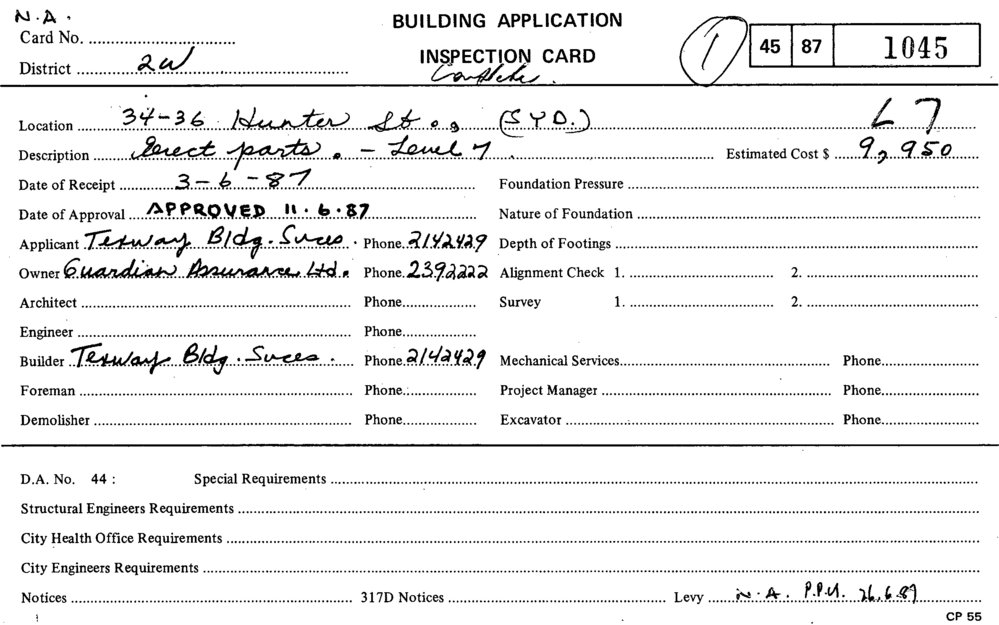 N.A.
Card No.
BUILDING APPLICATION
INSPECTION CARD
Completed.
1
45 87 1045
District 2W
L7
Location 34-36 Hunter St., (SYD.)
Description Erect parts. - Level 7 Estimated Cost $ 9,950
Date of Receipt 3-6-87 Foundation Pressure
Date of Approval APPROVED 11.6.87 Nature of Foundation
Applicant Texway Bldg. Svces. Phone. 2142429 Depth of Footings
Owner Guardian Assurance Ltd. Phone. 2392222 Alignment Check 1. 2.
Architect Phone Survey 1. 2.
Engineer Phone
Builder Texway Bldg. Svces. Phone. 2142429 Mechanical Services Phone
Foreman Phone Project Manager Phone
Demolisher Phone Excavator Phone
D.A. No. 44 : Special Requirements
Structural Engineers Requirements
City Health Office Requirements
City Engineers Requirements
Notices 317D Notices Levy N.A. 26.6.87
CP 55